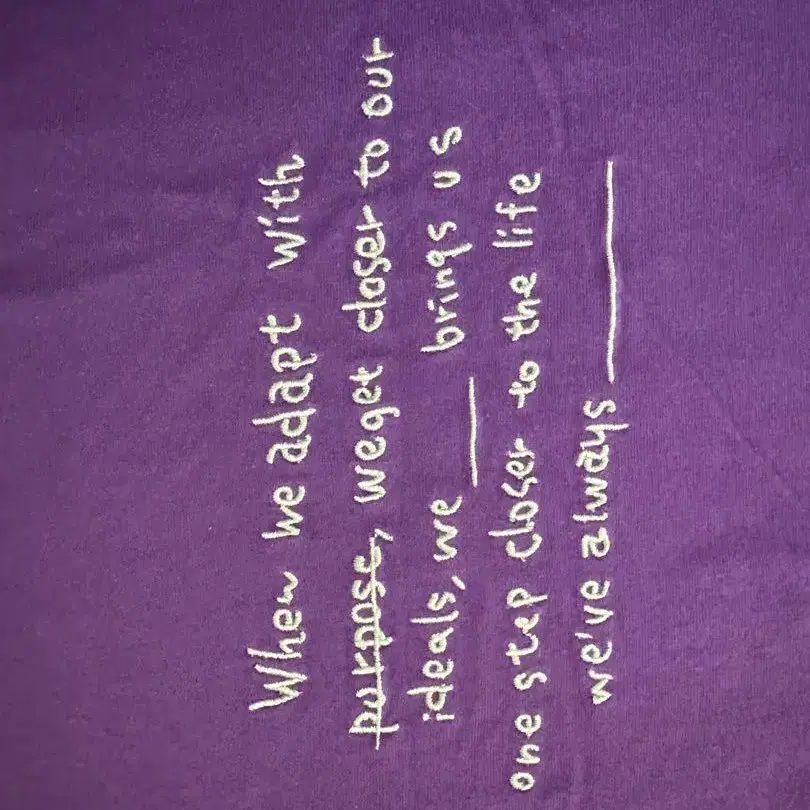 When we adapt with
purpose, weget closer to our
ideals, we ____ brings us
one step closer to the life
we've always ________